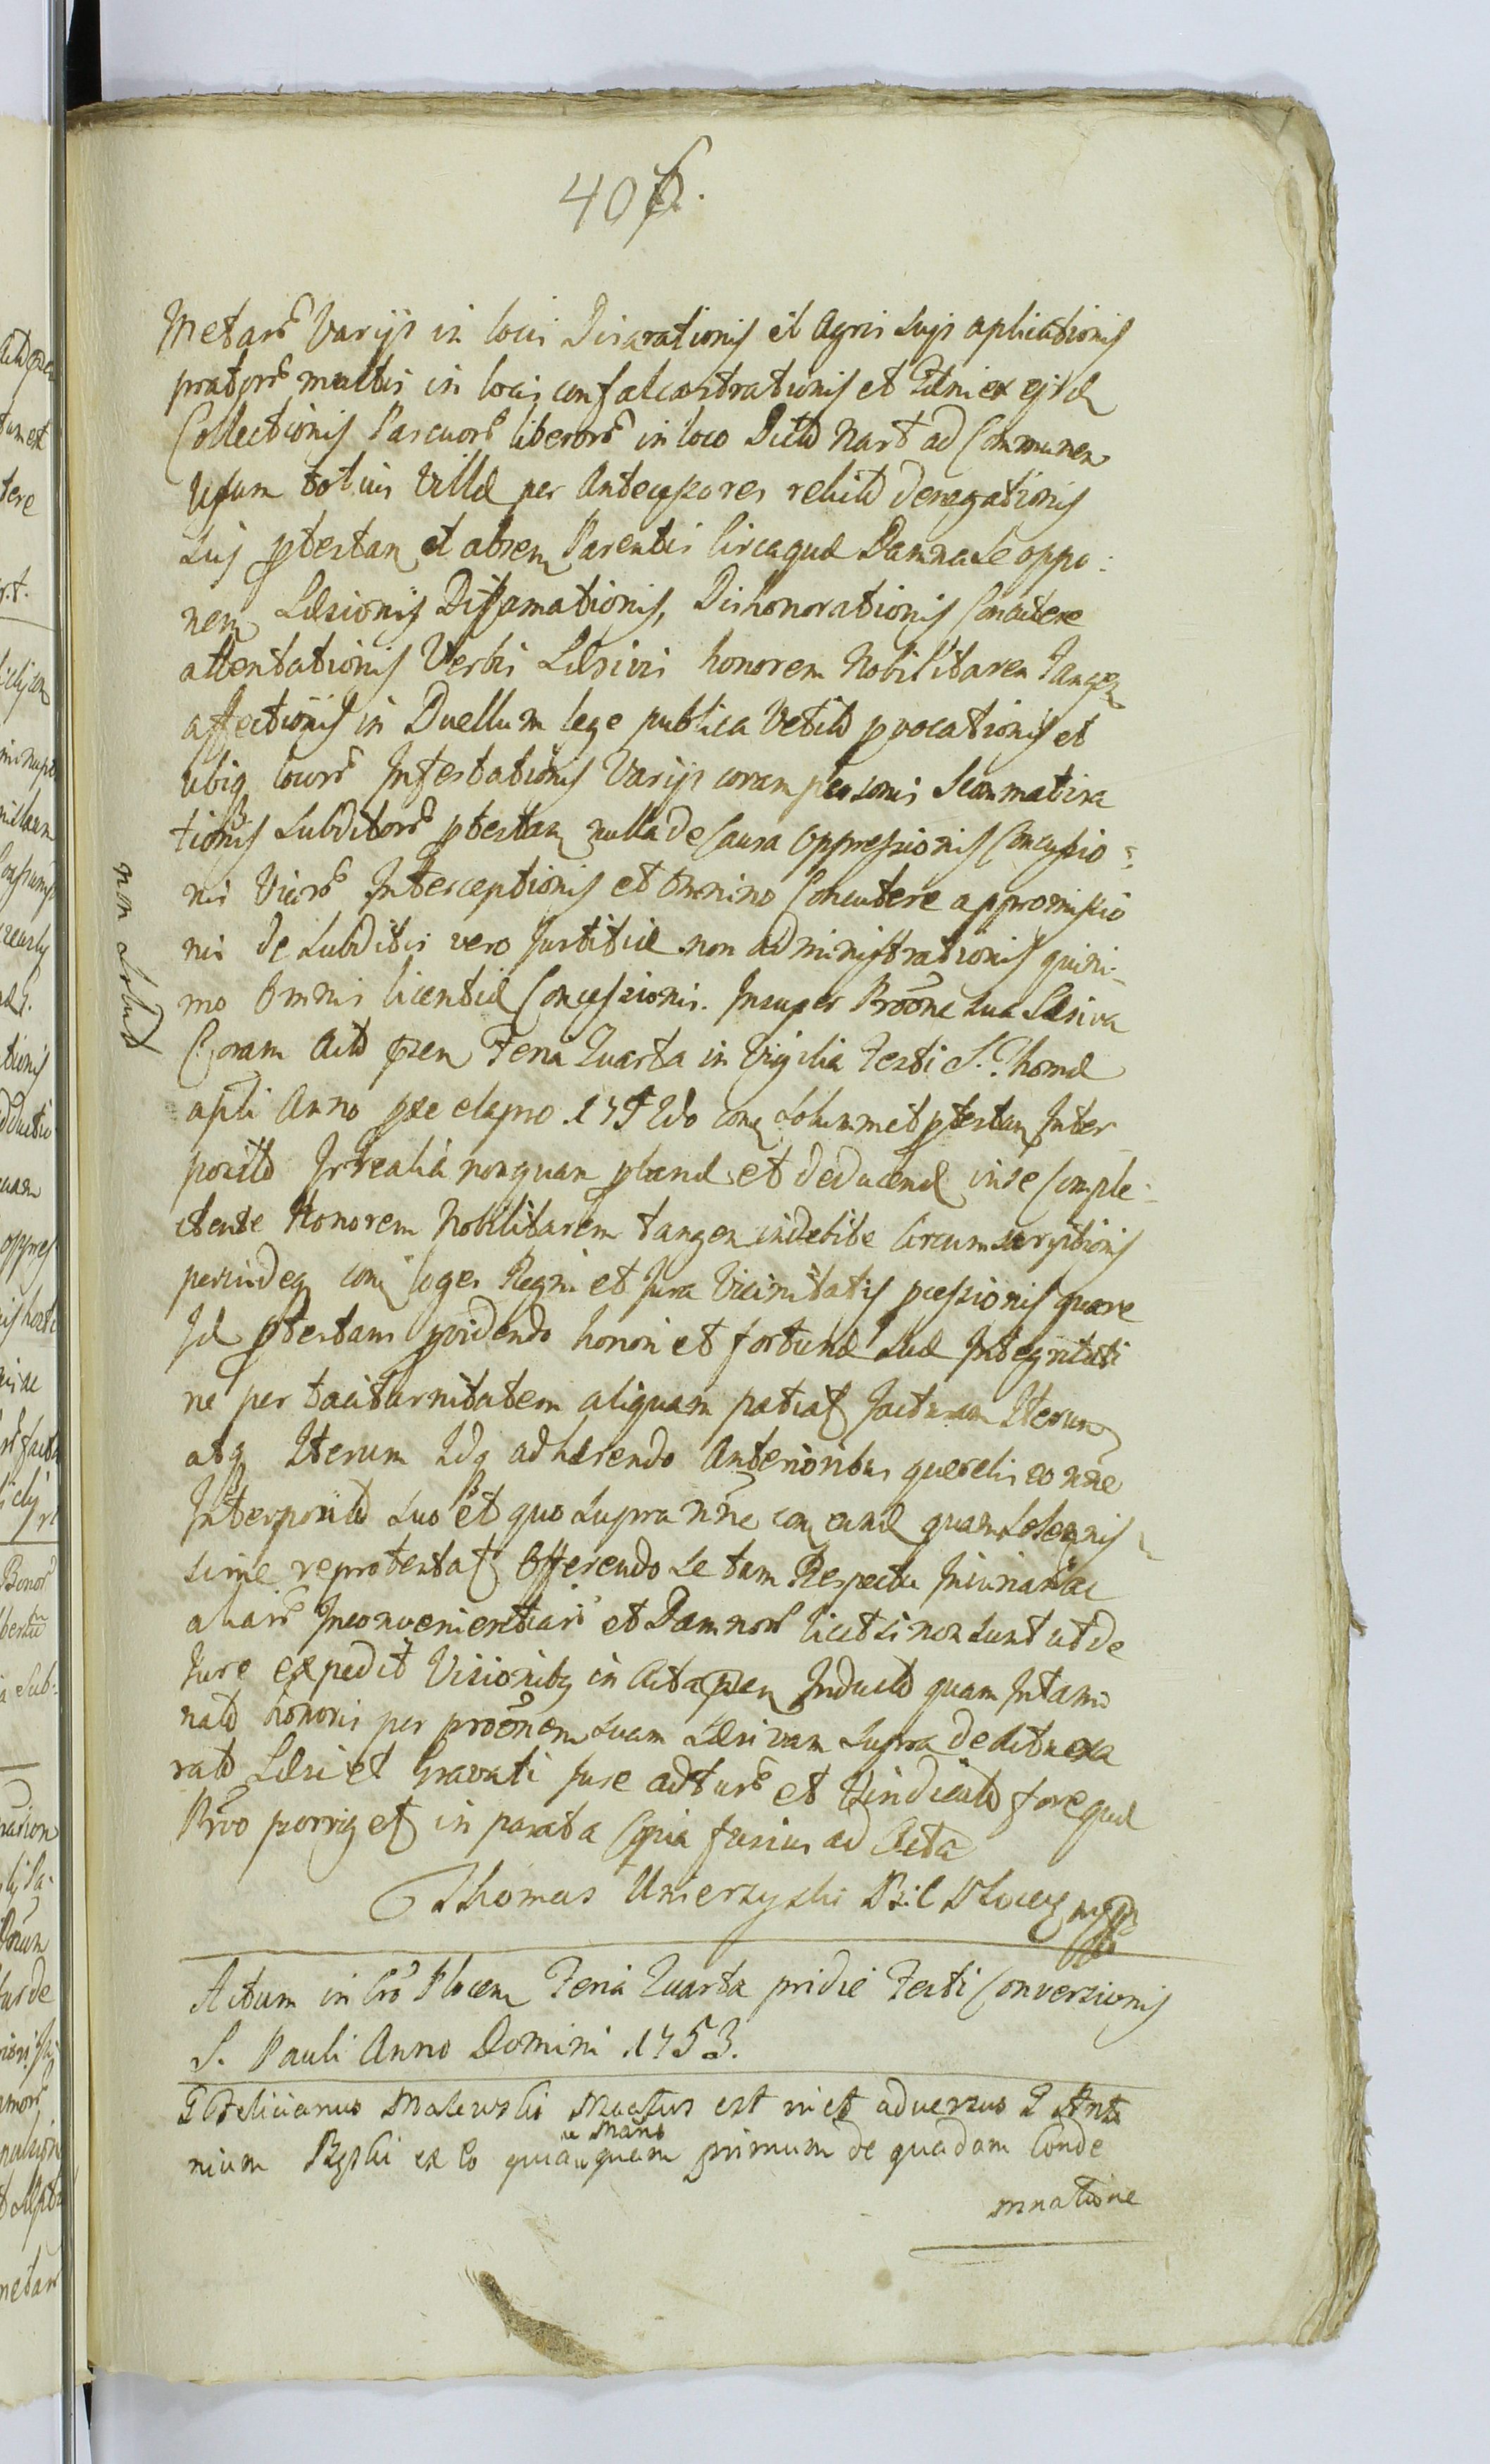 40
Metarū Varijs in locis Disarationis et Agris suis aplicationis
pratorū multis in locis confalcastrationis et faeni ex eisd
Collectionis Pascuorū liberorū in loco Dicto Nart ad Communem
Usum totius Villae per Antecessores relicto denegationis
suis ptestan et absen Parentis Circaque Damna se oppo:
nen Laesionis Diffamationis, Dishonorationis Concutere
attentationis Verbis Laesivis honorem Nobilitarem Tangen
affectionis in Duellum lege publica Vetito provocationis et
ubiq locorū Infestationis Varijs coram personis Scommatiza
tionis Subditorū ptestan nulla de Causa Oppressionis Concussio:
nis Viarū Interceptionis et omnino Concutere appromissio
nis de Subditis vero Justitiae non administrationis quini:
mo Omnis licentiae Concessionis. Insuper Proõne sua Laesiva
Coram Actis pren Feria Quarta in Vigilia Festi S. Thomae
apli Anno prae elapso 1752do con solummet ptestan Inter
posito Irrealia nonquam pband et deducend in se comple:
ctente Honorem Nobilitarem tangen indebite Circumscriptionis
perindeq con leges Regni et Jura Vicinitatis pcessionis quare
Id ptestans pvidendo honori et fortunae suae Integritati
ne per taciturnitatem aliquam patiat Jacturam Iterum
atq Iterum Idq adhaerendo Anterioribus querelis eo nne
Interposito suo et quo supra nne con eund quam solennis
sime reprotestat Offerendo se tam Respectu Iniuriar ac
aliarū Inconvenientiarū et Damnorū licet si non sunt ut de
Jure expedit Visionibq in Acta pren Inducto quam Intami
nato honoris per proõnem suam Laesivam supra de actu exa
rato Laesi et Gravati Jure acturū et Vindicato fore quod
Prvo porriget in parata Copia fusius ad Acta
Thomas Umierzyski B:C Plocen mpp
Actum in Cro Plocen Feria Quarta pridie Festi Conversionis
S. Pauli Anno Domini 1753.
G Felicianus Malewski Questus est in et adversus G Anto
nium Rzski ex Eo quia quam primum de quadam Conde
mnatione
non solus